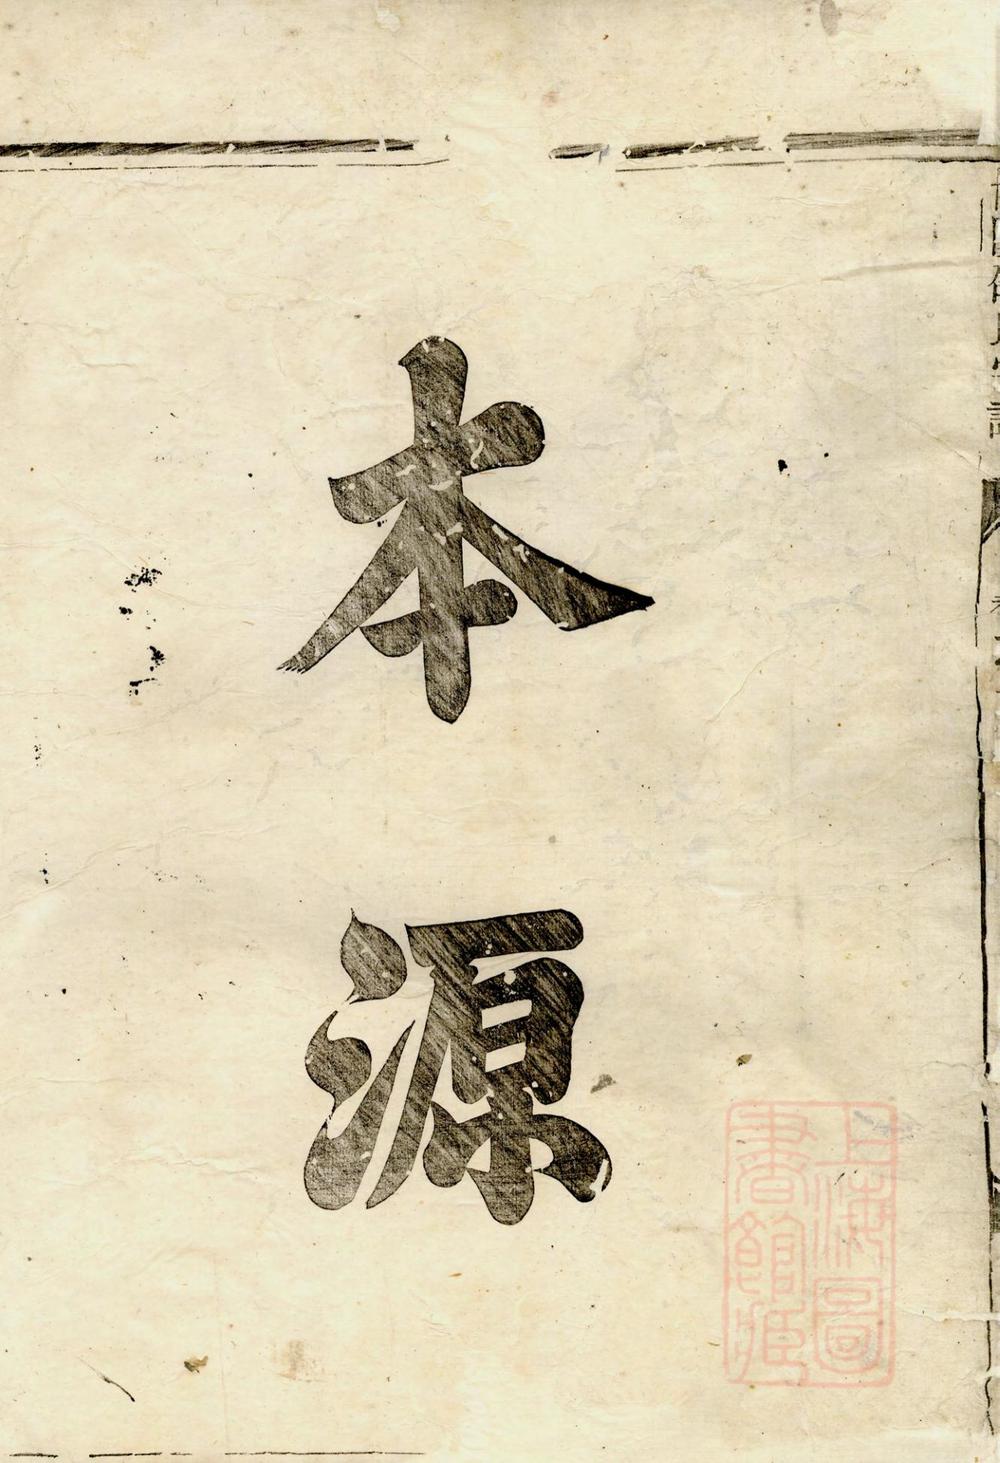 本源
上海圖
書館藏